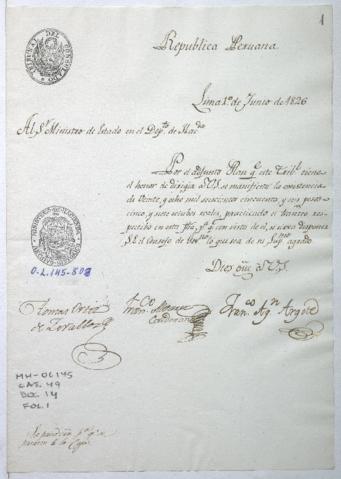 1
TRIBUNAL DEL CONSULADO
Republica Peruana.
Lima 1º de Junio de 1826
Al Sr. Ministro de Estado en el Depto. de Hazda.
Por el adjunto Plan q. este Tribl. tiene
el honor de dirigir a V.S. se manifiesta la existencia
de Veinte, y ocho mil seiscientos cincuenta, y seis pesos
cinco, y siete octavos reales, practicado el tanteo res-
pectivo en esta fha, y q. con vista de el, se sirva disponer
S.E. el Consejo de lo que sea de su Supmo. agrado
Dios gue. a V.S.
O.L. 145-808
Tomas Ortiz
de Zevallos
Franco.
Franco. Agn. Argote
MH-OL145
CAJ. 49
DOC. 14
FOL. 1